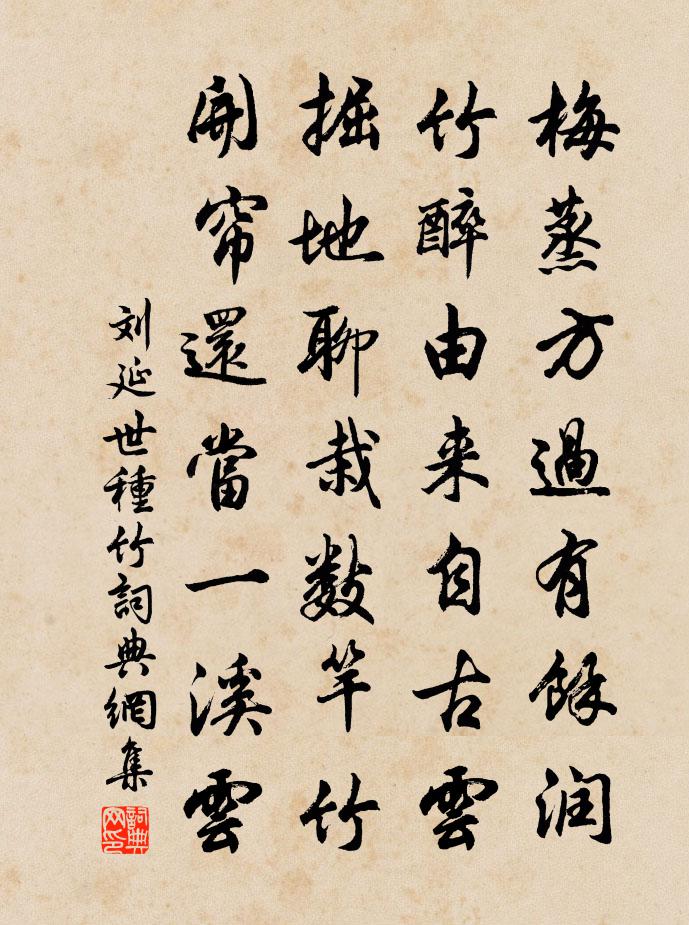 梅蒸方過有餘润
竹醉由来自古雲
掘地聊栽数竿竹
開帘還當一溪雲
刘延世種竹詞典網集
詞典网印